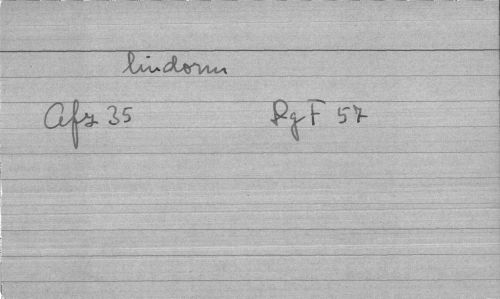 lindorm
Afz 35 RgF 57